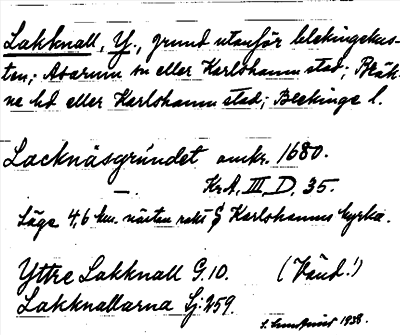 Lakknall, Y., grund utanför blekingekus-
ten; Asarum sn eller Karlshamn stad; Bräk-
ne hd eller Karlshamn stad; Blekinge l.
Lacknäsgrundet omkr. 1680.
—.— Kr.A. III, D. 35.
Läge 4,6 km. nästan rakt S Karlshamns kyrka.
Yttre Lakknall G.10. (Vänd!)
Lakknallarna Sj. 259.
1938.